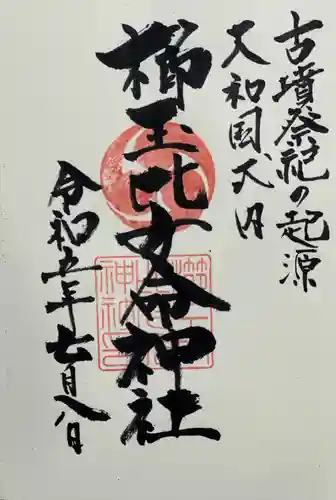 古墳祭祀の起源
大和国弐月
櫛玉比女命神社
令和五年七月八日